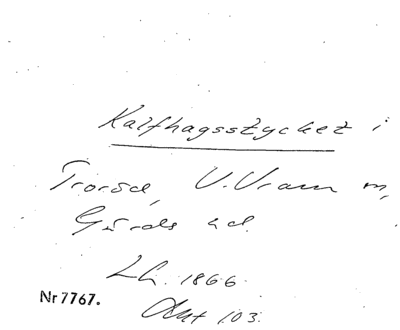 Kalfhagsstycket i
Trorod, V. Vram m,
Gärds hd.
Lh. 1866
Nr 7767.
Akt 103.